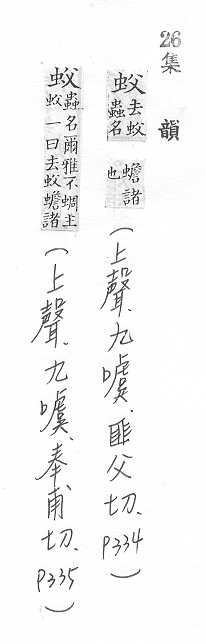 26集韻
蚥去蚥蟲名蟾諸也(上聲、九噳、匪父切、p334)
蚥蟲名爾雅不蜩王蚥一曰去蚥蟾諸(上聲、九噳、奉甫切、p335)